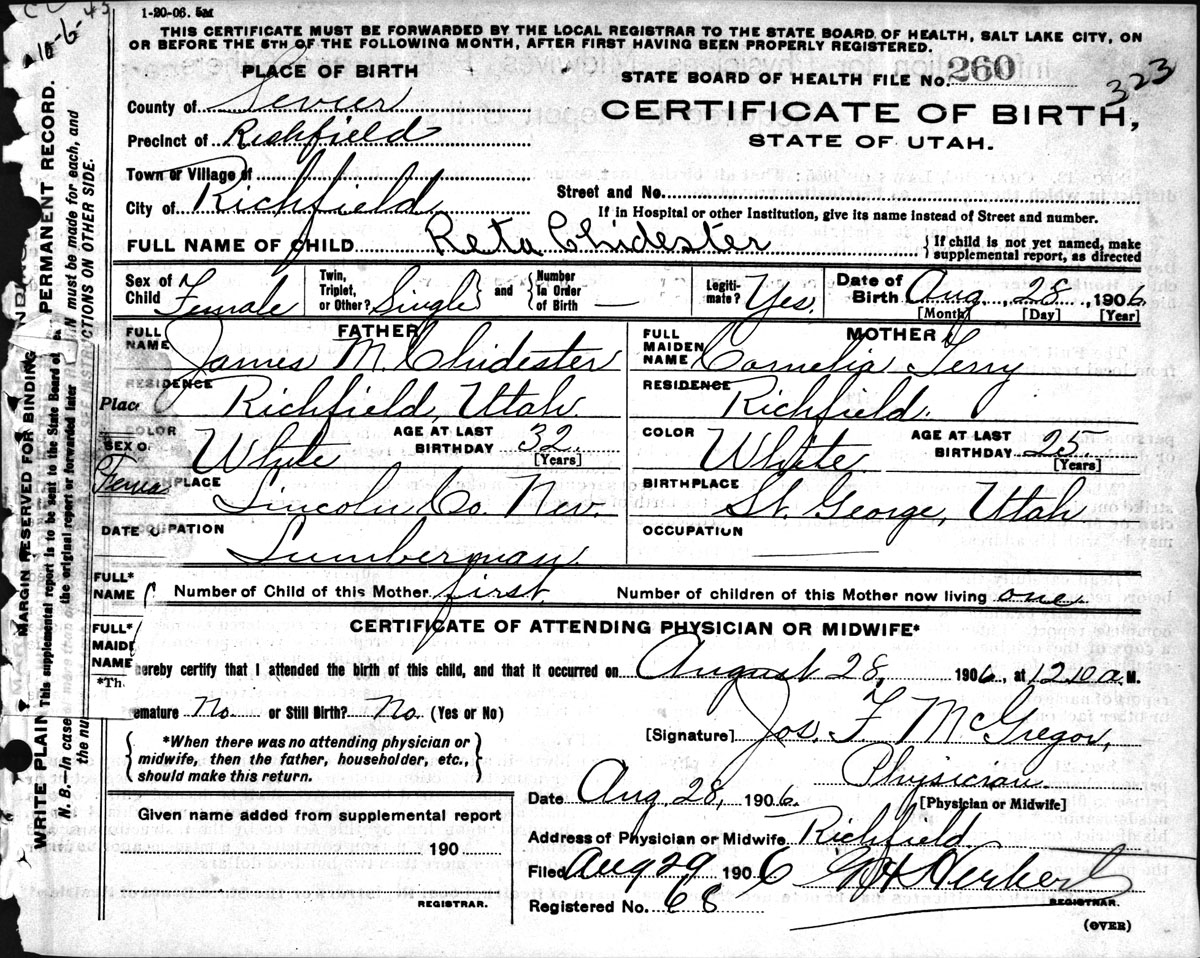 1-20-06. 5M
THIS CERTIFICATE MUST BE FORWARDED BY THE LOCAL REGISTRAR TO THE STATE BOARD OF HEALTH, SALT LAKE CITY, ON
OR BEFORE THE 5TH OF THE FOLLOWING MONTH, AFTER FIRST HAVING BEEN PROPERLY REGISTERED.
PLACE OF BIRTH
STATE BOARD OF HEALTH FILE No. 260
323
County of Sevier
CERTIFICATE OF BIRTH,
Precinct of Richfield
STATE OF UTAH.
Town or Village of
Street and No.
City of Richfield
If in Hospital or other Institution, give its name instead of Street and number.
FULL NAME OF CHILD Reta Chidester
{If child is not yet named, make
supplemental report, as directed
Sex of Child Female
Twin, Triplet, or Other? Single } and { Number In Order of Birth —
Legiti- mate? Yes.
Date of Birth Aug, 28, 1906
[Month] [Day] [Year]
FATHER
FULL NAME James M. Chidester
RESIDENCE Richfield, Utah.
COLOR White
AGE AT LAST BIRTHDAY 32
[Years]
BIRTHPLACE Lincoln Co. Nev.
OCCUPATION Lumberman
MOTHER
FULL MAIDEN NAME Cornelia Terry
RESIDENCE Richfield.
COLOR White.
AGE AT LAST BIRTHDAY 25
[Years]
BIRTHPLACE St. George, Utah
OCCUPATION
Place
SEX O
Fema
DATE O
FULL*
NAME
FULL*
MAIDE
NAME
*Th
Number of Child of this Mother first.
Number of children of this Mother now living one
CERTIFICATE OF ATTENDING PHYSICIAN OR MIDWIFE*
hereby certify that I attended the birth of this child, and that it occurred on August 28, 1906, at 12.10 a. M.
emature No. or Still Birth? No. (Yes or No)
{ *When there was no attending physician or
midwife, then the father, householder, etc.,
should make this return. }
[Signature] Jos. F. McGregor,
Physician
[Physician or Midwife]
Date Aug. 28, 1906.
Given name added from supplemental report
190
REGISTRAR.
Address of Physician or Midwife Richfield.
Filed Aug 29 1906 Herbert
REGISTRAR.
Registered No. 68
(OVER)
MARGIN RESERVED FOR BINDING
PERMANENT RECORD.
WRITE PLAIN
This supplemental report is to be sent to the State Board of
the original report or forwarded later
N. B.—In case
must be made for each, and
CTIONS ON OTHER SIDE.